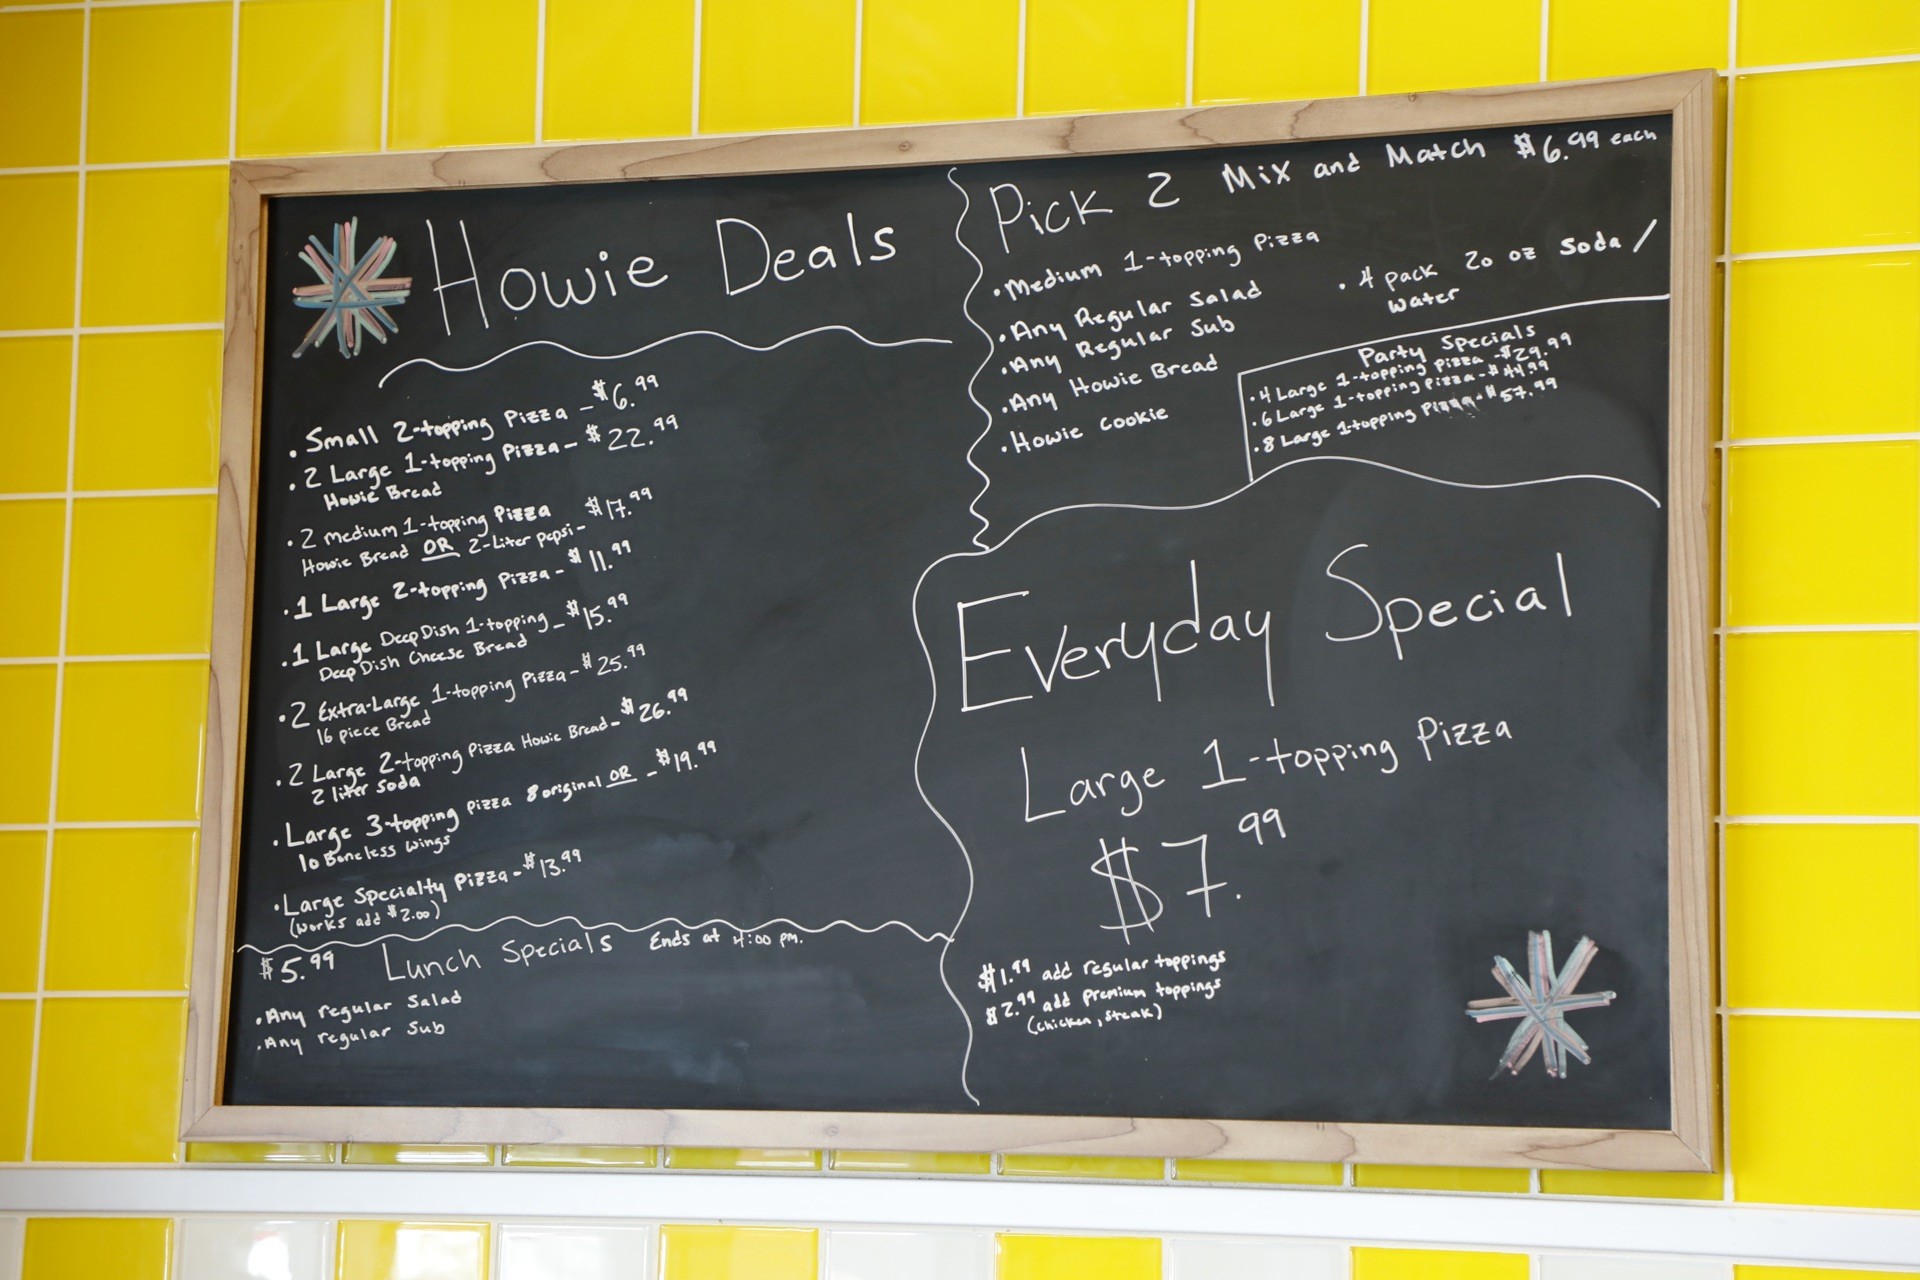 Howie Deals
• Small 2-topping Pizza - $6.99
• 2 Large 1-topping Pizza - $22.99
Howie Bread
• 2 medium 1-topping Pizza
Howie Bread OR 2-Liter pepsi - $17.99
• 1 Large 2-topping Pizza - $11.99
• 1 Large Deep Dish 1-topping - $15.99
Deep Dish Cheese Bread
• 2 Extra-Large 1-topping Pizza - $25.99
16 piece Bread
• 2 Large 2-topping Pizza Howie Bread - $26.99
2 liter soda
• Large 3-topping Pizza 8 original OR - $19.99
10 Boneless wings
• Large Specialty Pizza - $13.99
(works add $2.00)
$5.99 Lunch Specials Ends at 4:00 pm.
• Any regular Salad
• Any regular Sub
Pick 2 Mix and Match $6.99 each
• Medium 1-topping Pizza
• Any Regular Salad
• Any Regular Sub
• Any Howie Bread
• Howie cookie
• 4 pack 20 oz Soda /
water
Party Specials
• 4 Large 1-topping pizza - $29.99
• 6 Large 1-topping Pizza - $44.99
• 8 Large 1topping Pizza - $57.99
Everyday Special
Large 1-topping Pizza
$7.99
$1.99 add regular toppings
$2.99 add premium toppings
(chicken, steak)